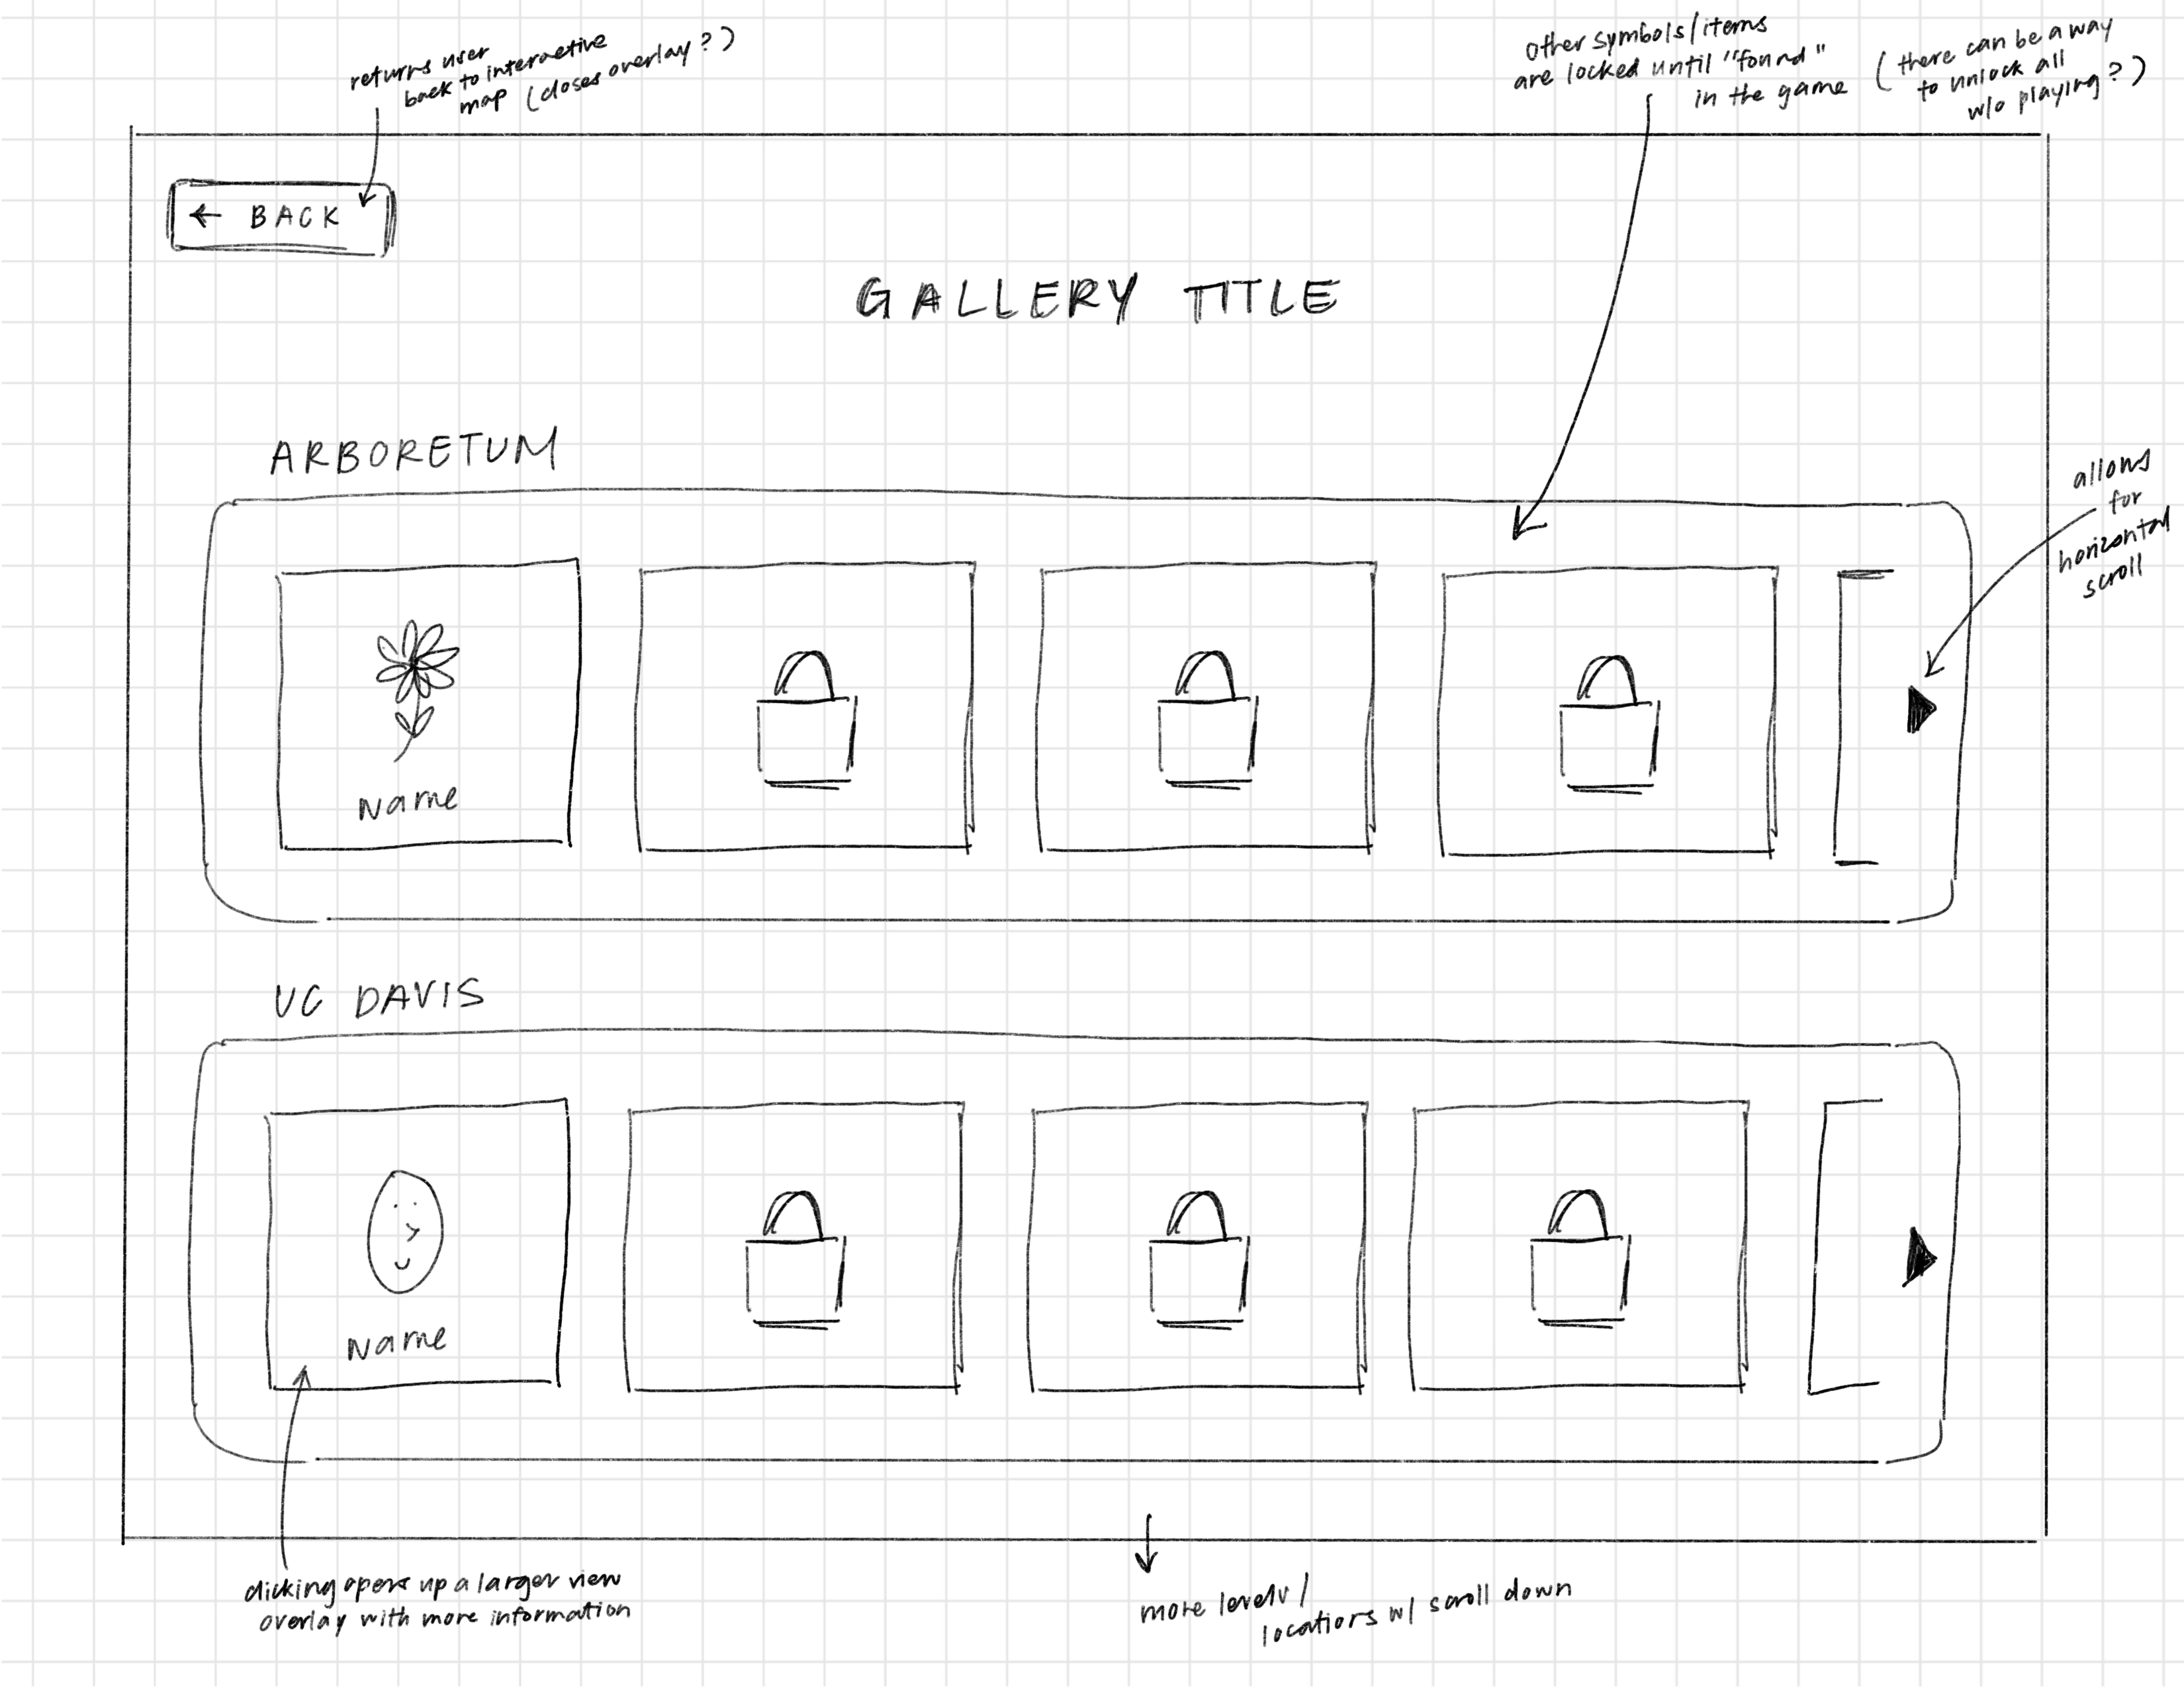 returns user
back to interactive
map (closes overlay?)
other symbols/items
are locked until "found"
in the game
(there can be a way
to unlock all
w/o playing?)
← BACK
GALLERY TITLE
ARBORETUM
allows
for
horizontal
scroll
Name
UC DAVIS
Name
clicking opens up a larger view
overlay with more information
more levels/
locations w/ scroll down